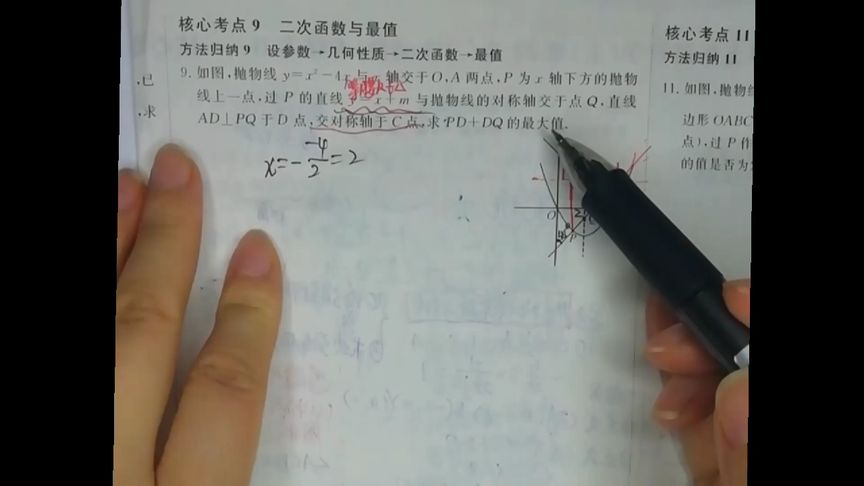 核心考点 9 二次函数与最值
方法归纳 9 设参数→几何性质→二次函数→最值
9. 如图,抛物线 y=x²-4x 与 x 轴交于 O,A 两点,P 为 x 轴下方的抛物
线上一点,过 P 的直线 y=x+m 与抛物线的对称轴交于点 Q,直线
AD⊥PQ 于 D 点,交对称轴于 C 点,求 PD+DQ 的最大值.
x=-\frac{-4}{2}=2
O
2
,已
,求
核心考点 11
方法归纳 11
11. 如图,抛物线
边形 OABC
点),过 P 作
的值是否为